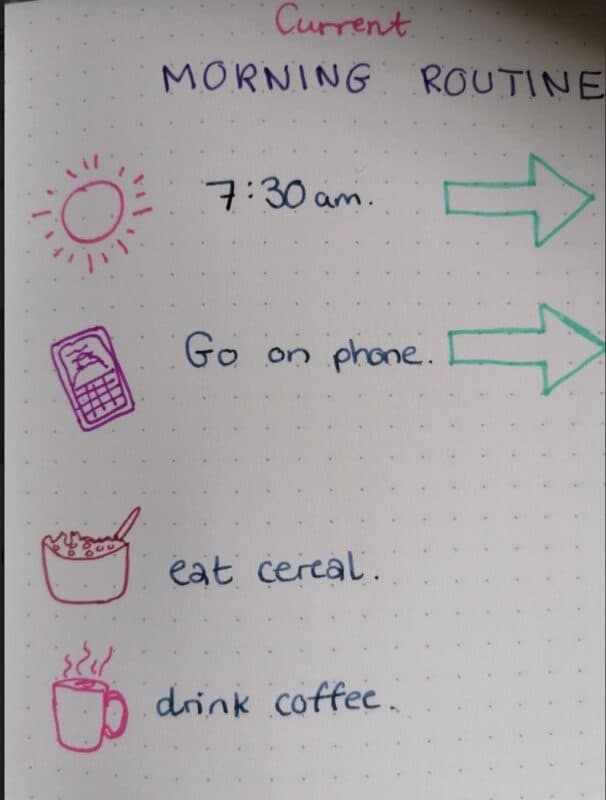 Current
MORNING ROUTINE
7:30 am.
Go on phone.
eat cereal.
drink coffee.